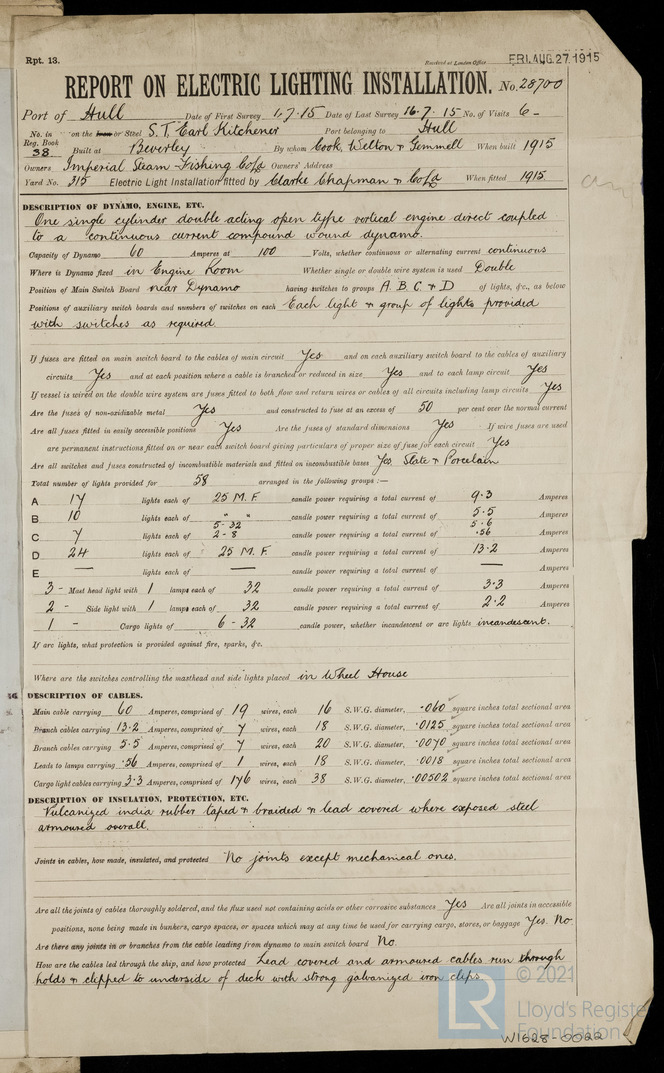 Rpt. 13.
Received at London Office FRI. AUG. 27 1915
REPORT ON ELECTRIC LIGHTING INSTALLATION. No. 28700
Port of Hull Date of First Survey 1.7.15 Date of Last Survey 16.7.15 No. of Visits 6-
No. in Reg. Book 38 on the Iron or Steel S.T. Earl Kitchener Port belonging to Hull
Built at Beverley By whom Cook, Welton & Gemmell When built 1915
Owners Imperial Steam Fishing Co Ld Owners' Address
Yard No. 315 Electric Light Installation fitted by Clarke Chapman & Co Ld When fitted 1915
DESCRIPTION OF DYNAMO, ENGINE, ETC.
One single cylinder double acting open type vertical engine direct coupled
to a continuous current compound wound dynamo.
Capacity of Dynamo 60 Amperes at 100 Volts, whether continuous or alternating current continuous
Where is Dynamo fixed in Engine Room Whether single or double wire system is used Double
Position of Main Switch Board near Dynamo having switches to groups A. B. C. & D of lights, &c., as below
Positions of auxiliary switch boards and numbers of switches on each Each light & group of lights provided
with switches as required.
If fuses are fitted on main switch board to the cables of main circuit Yes and on each auxiliary switch board to the cables of auxiliary
circuits Yes and at each position where a cable is branched or reduced in size Yes and to each lamp circuit Yes
If vessel is wired on the double wire system are fuses fitted to both flow and return wires or cables of all circuits including lamp circuits Yes
Are the fuses of non-oxidizable metal Yes and constructed to fuse at an excess of 50 per cent over the normal current
Are all fuses fitted in easily accessible positions Yes Are the fuses of standard dimensions Yes If wire fuses are used
are permanent instructions fitted on or near each switch board giving particulars of proper size of fuse for each circuit Yes
Are all switches and fuses constructed of incombustible materials and fitted on incombustible bases Yes, Slate & Porcelain
Total number of lights provided for 58 arranged in the following groups :—
A 17 lights each of 25 M.F. candle power requiring a total current of 9.3 Amperes
B 10 lights each of " " candle power requiring a total current of 5.5 Amperes
C 7 lights each of 5-32 2-8 candle power requiring a total current of 5.6 .56 Amperes
D 24 lights each of 25 M.F. candle power requiring a total current of 13.2 Amperes
E — lights each of — candle power requiring a total current of — Amperes
3 - Mast head light with 1 lamps each of 32 candle power requiring a total current of 3.3 Amperes
2 - Side light with 1 lamps each of 32 candle power requiring a total current of 2.2 Amperes
1 - Cargo lights of 6-32 candle power, whether incandescent or arc lights incandescent.
If arc lights, what protection is provided against fire, sparks, &c.
Where are the switches controlling the masthead and side lights placed in Wheel House
DESCRIPTION OF CABLES.
Main cable carrying 60 Amperes, comprised of 19 wires, each 16 S.W.G. diameter, .060 square inches total sectional area
Branch cables carrying 13.2 Amperes, comprised of 7 wires, each 18 S.W.G. diameter, .0125 square inches total sectional area
Branch cables carrying 5.5 Amperes, comprised of 7 wires, each 20 S.W.G. diameter, .0070 square inches total sectional area
Leads to lamps carrying .56 Amperes, comprised of 1 wires, each 18 S.W.G. diameter, .0018 square inches total sectional area
Cargo light cables carrying 3.3 Amperes, comprised of 176 wires, each 38 S.W.G. diameter, .00502 square inches total sectional area
DESCRIPTION OF INSULATION, PROTECTION, ETC.
Vulcanized india rubber taped & braided & lead covered where exposed steel
armoured overall.
Joints in cables, how made, insulated, and protected No joints except mechanical ones.
Are all the joints of cables thoroughly soldered, and the flux used not containing acids or other corrosive substances Yes Are all joints in accessible
positions, none being made in bunkers, cargo spaces, or spaces which may at any time be used for carrying cargo, stores, or baggage Yes. No
Are there any joints in or branches from the cable leading from dynamo to main switch board No.
How are the cables led through the ship, and how protected Lead covered and armoured cables run through
holds & clipped to underside of deck with strong galvanized iron clips.
© 2021
LR
Lloyd's Registe
Foundation
W1628-0022